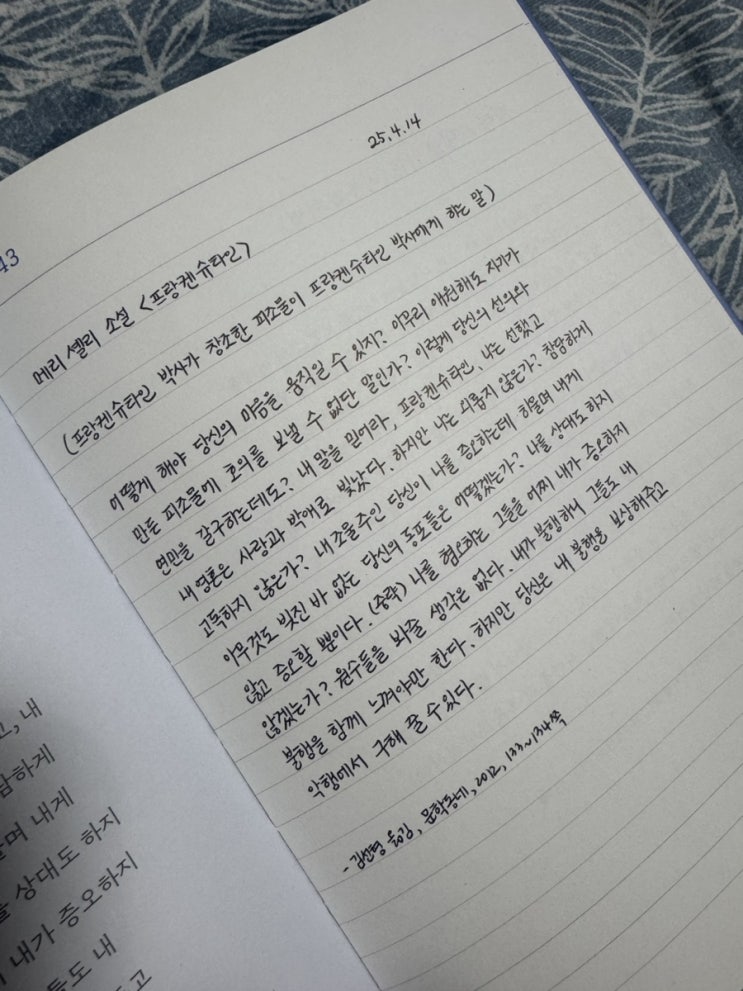 43
25.4.14
메리 셸리 소설 <프랑켄슈타인>
(프랑켄슈타인 박사가 창조한 피조물이 프랑켄슈타인 박사에게 하는 말)
어떻게 해야 당신의 마음을 움직일 수 있지? 아무리 애원해도 자기가
만든 피조물에 호의를 보낼 수 없단 말인가? 이렇게 당신의 선의와
연민을 갈구하는데도? 내 말을 믿어라, 프랑켄슈타인, 나는 선했고
내 영혼은 사랑과 박애로 빛났다. 하지만 나는 외롭지 않은가? 참담하게
고독하지 않은가? 내 조물주인 당신이 나를 증오하는데 하물며 내게
아무것도 빚진 바 없는 당신의 동포들은 어떻겠는가? 나를 상대도 하지
않고 증오할 뿐이다. (중략) 나를 혐오하는 그들을 어찌 내가 증오하지
않겠는가? 원수들을 봐줄 생각은 없다. 내가 불행하니 그들도 내
불행을 함께 느껴야만 한다. 하지만 당신은 내 불행을 보상해주고
악행에서 구해 줄 수 있다.
- 김선형 옮김, 문학동네, 2012, 133~134쪽
고, 내
담하게
며 내게
상대도 하지
내가 증오하지
들도 내
고